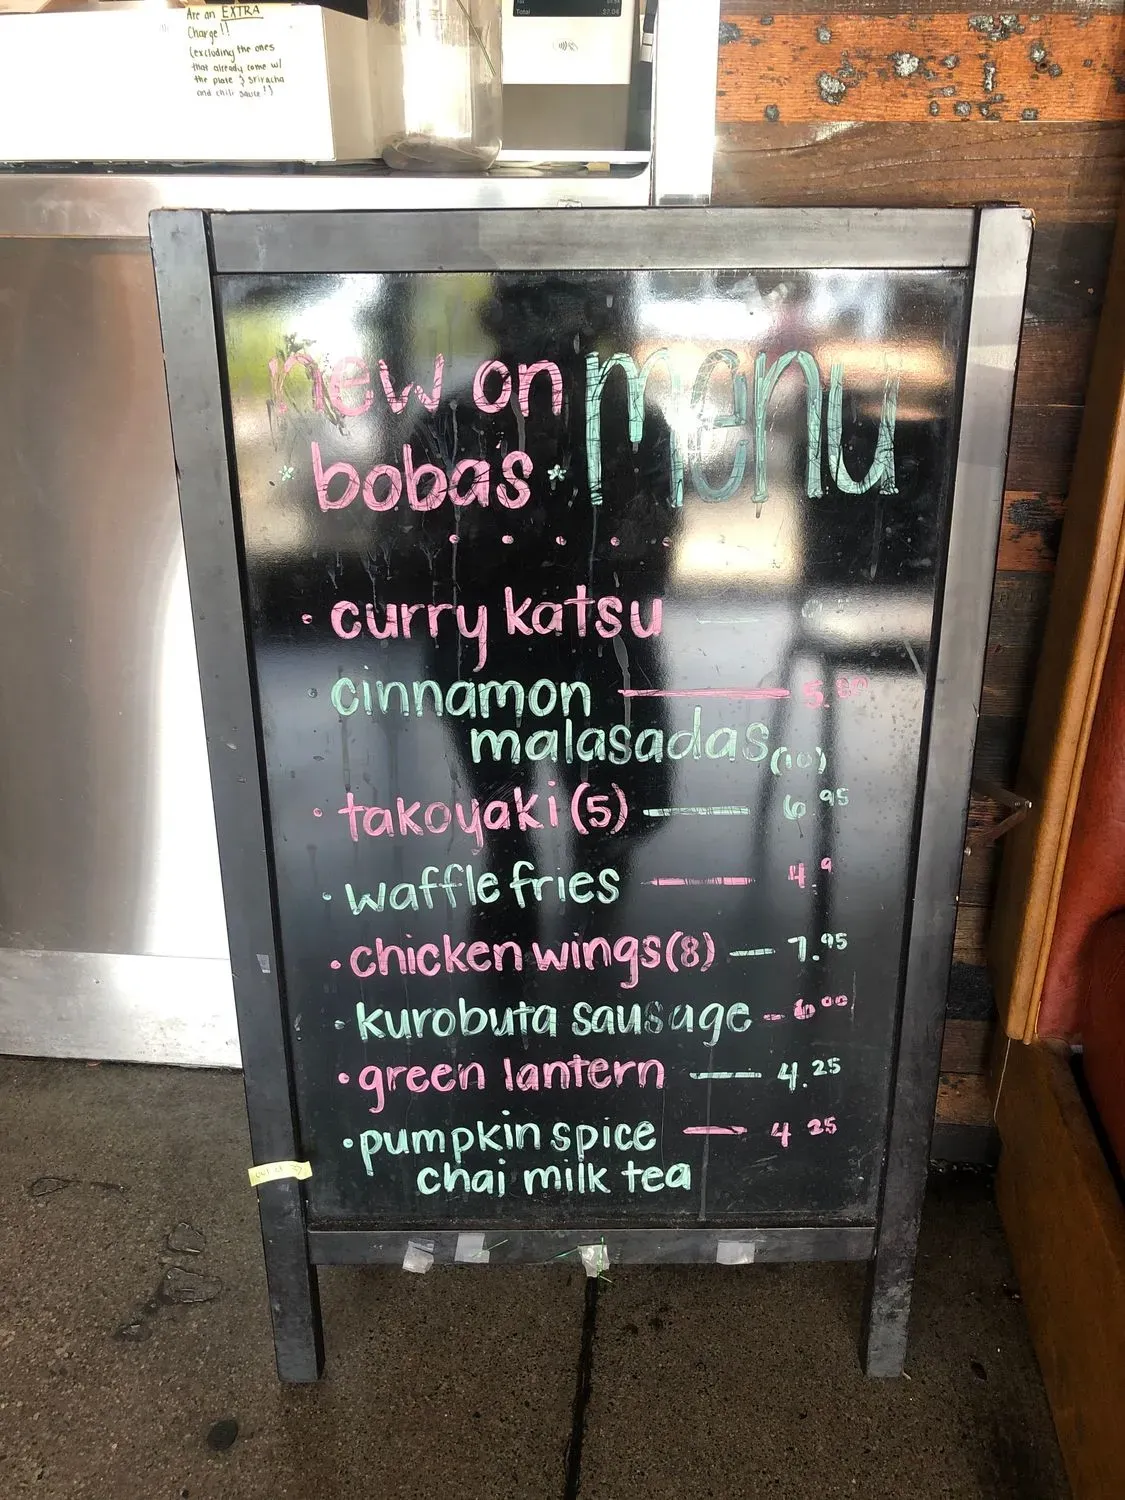 Total $7.04
Are an EXTRA
Charge!!
(excluding the ones
that already come w/
the plate & sriracha
and chili sauce!)
new on menu
* bobas *
• curry katsu
• cinnamon — 5.50
malasadas (10)
• takoyaki (5) — 6.95
• waffle fries — 4.9
• chicken wings (8) — 7.95
• kurobuta sausage - 6.00
• green lantern — 4.25
• pumpkin spice — 4 25
chai milk tea
out of